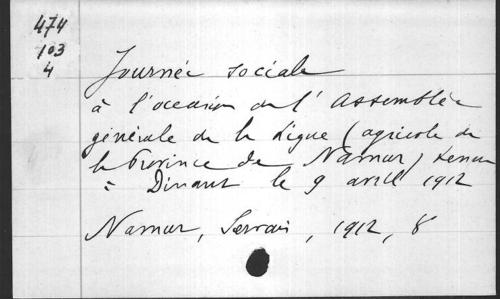 474
103
4
Journée sociale
à l'occasion de l'Assemblée
générale de la Ligue (agricole de
la Province de Namur) tenue
à Dinant le 9 avril 1912
Namur, Servais, 1912, 8°